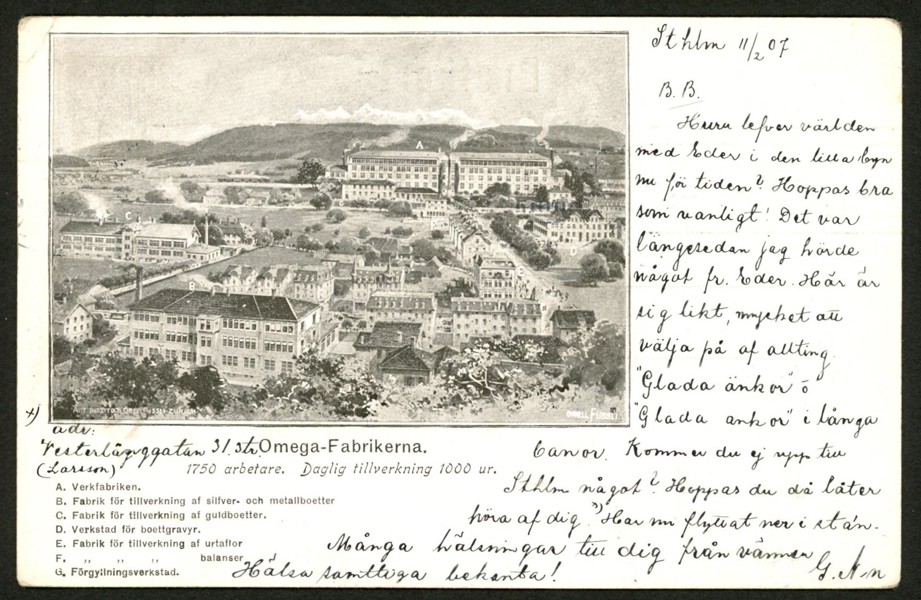 Sthlm 11/2 07
B. B.
Huru lefver världen
med Eder i den lilla byn
nu för tiden? Hoppas bra
som vanligt! Det var
längesedan jag hörde
något fr. Eder. Här är
sig likt, mycket att
välja på af allting.
"Glada änkor" o
"Glada ankor" i långa
banor. Kommer du ej upp till
Sthlm något? Hoppas du då låter
höra af dig. x) Har nu flyttat ner i stan.
Många hälsningar till dig från vännen
G. A-n
Hälsa samtliga bekanta!
x) adr:
Vesterlånggatan 31. 3tr.
(Larsson)
A
B
C
ORELL FUSSLI
Omega-Fabrikerna.
1750 arbetare. Daglig tillverkning 1000 ur.
A. Verkfabriken.
B. Fabrik för tillverkning af silfver- och metallboetter
C. Fabrik för tillverkning af guldboetter.
D. Verkstad för boettgravyr.
E. Fabrik för tillverkning af urtaflor
F. „ „ „ balanser
G. Förgyllningsverkstad.